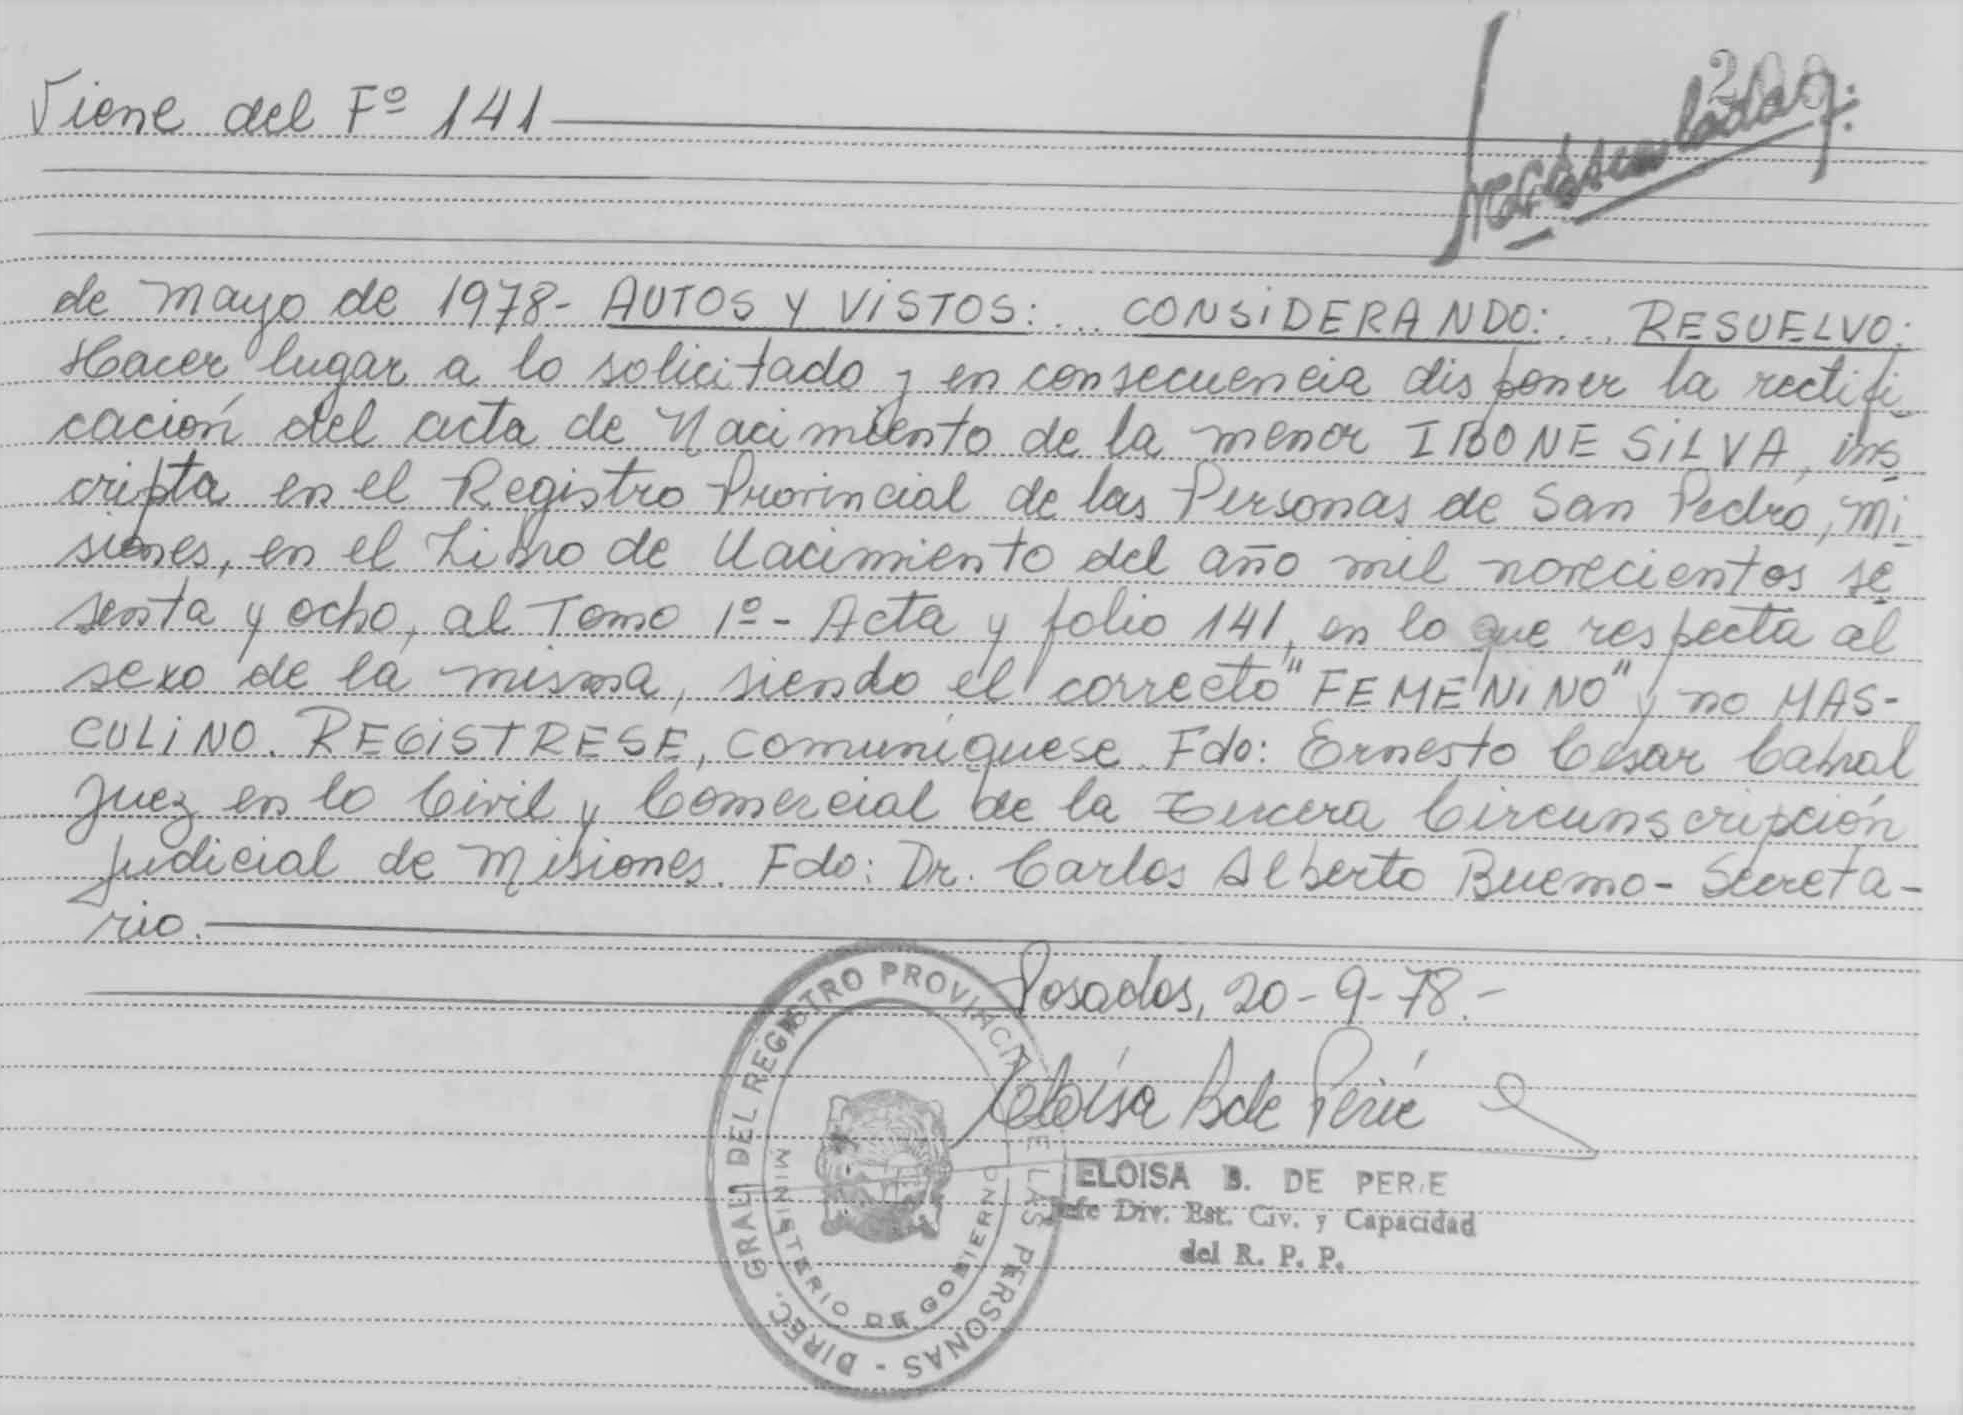 Viene del Fº 141
de Mayo de 1978- AUTOS Y VISTOS: ... CONSIDERANDO: ... RESUELVO:
Hacer lugar a lo solicitado y en consecuencia disponer la rectifi-
cación del acta de Nacimiento de la menor IBONE SILVA, ins
cripta en el Registro Provincial de las Personas de San Pedro, Mi
siones, en el Libro de Nacimiento del año mil novecientos se
senta y ocho, al Tomo 1º - Acta y folio 141, en lo que respecta al
sexo de la misma, siendo el correcto "FEMENINO" y no MAS-
CULINO. REGISTRESE, comuníquese. Fdo: Ernesto César Cabral
Juez en lo Civil y Comercial de la Tercera Circunscripción
Judicial de Misiones. Fdo: Dr. Carlos Alberto Buemo - Secreta-
rio.
Posadas, 20-9-78.-
Eloísa B de Perié
ELOISA B. DE PERIE
Jefe Div. Est. Civ. y Capacidad
del R. P. P.
DIREC. GRAL DEL REGISTRO PROVINCIAL DE LAS PERSONAS -
MINISTERIO DE GOBIERNO